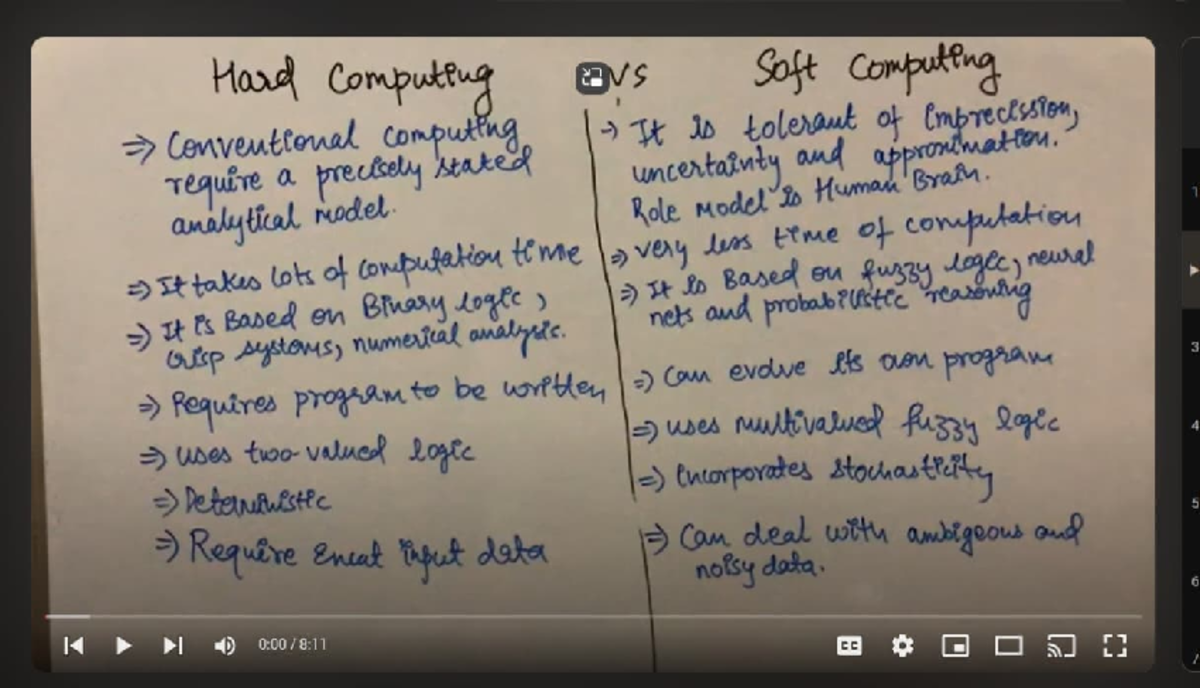 Hard Computing vs Soft Computing
⇒ Conventional computing
require a precisely stated
analytical model.
⇒ It takes lots of computation time
⇒ It is Based on Binary logic,
crisp systems, numerical analysis.
⇒ Requires program to be written
⇒ uses two-valued logic
⇒ Deterministic
⇒ Require Exact input data
→ It is tolerant of Imprecission,
uncertainty and approximation.
Role model is Human Brain.
⇒ very less time of computation
⇒ It is Based on fuzzy logic, neural
nets and probabilistic reasoning
⇒ Can evolve its own program
⇒ uses multivalued fuzzy logic
⇒ Incorporates stochasticity
⇒ Can deal with ambigeous and
noisy data.
0:00 / 8:11
CC
1
3
4
5
6